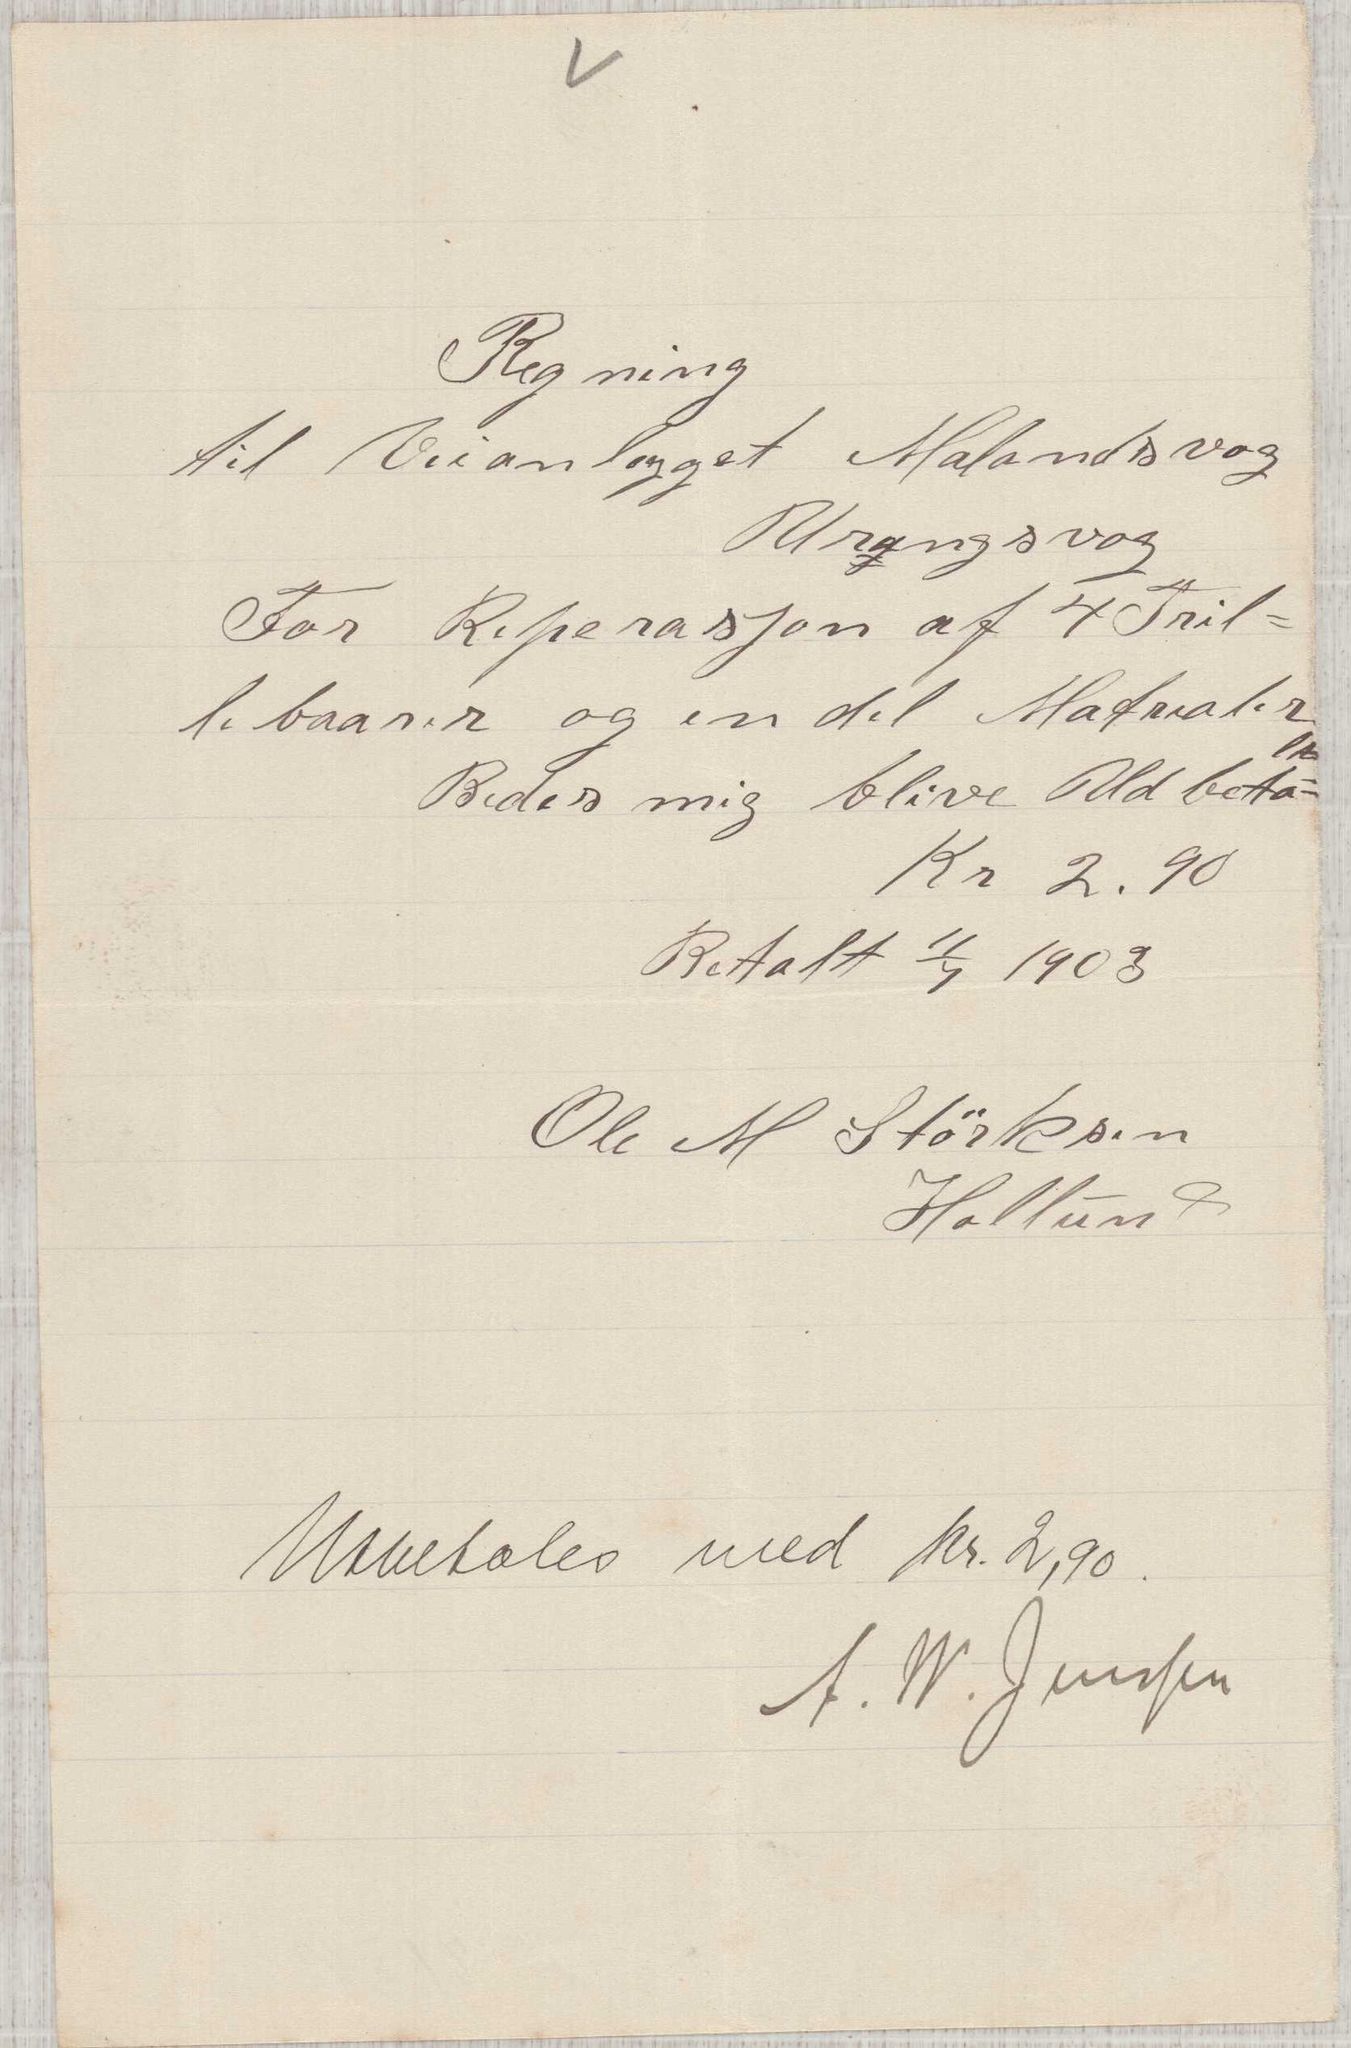 V
Regning
til Veianlægget Malandsvog
Urangsvog
For Reperasjon af 4 Tril=
lebaarer og en del Matrialer
Bedes mig blive Udbeta=
les
Kr 2.90
Betalt 11/7 1903
Ole M Störksen
Hollund
Utbetales med kr. 2,90.
A. W. Jenssen